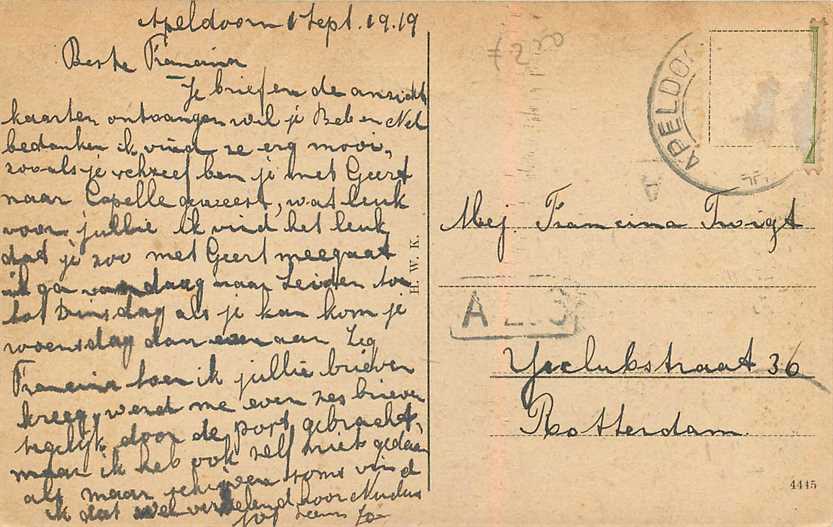 Apeldoorn 1 Sept. 1919
Beste Francina
Je brief en de ansicht
kaarten ontvangen wil je Beb en Nel
bedanken ik vind ze erg mooi,
zooals je schreef ben je met Geert
naar Capelle geweest, wat leuk
voor jullie ik vind het leuk
dat je zoo met Geert meegaat
ik ga vandaag naar Leiden toe
tot Dinsdag als je kan kom je
woensdag dan aan Zeg
Francina toen ik jullie brieven
kreeg, werd me even zes brieven
tegelijk door de post gebracht,
maar ik heb ook zelf niets gedaan
als maar schrijven soms vind
ik dat wel vervelend hoor
H. W. K.
ƒ 2,50
APELDOO
A
Mej. Francina Twigt
A
IJsclubstraat 36
Rotterdam.
4445